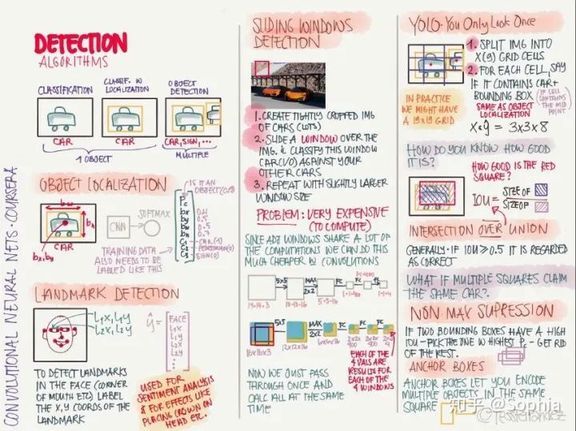 CONVOLUTIONAL NEURAL NETS - COURSERA
DETECTION
ALGORITHMS
CLASSIFICATION
CLASSIF. W
LOCALIZATION
OBJECT
DETECTION
CAR
CAR
CAR, SIGN, ...
1 OBJECT
MULTIPLE
OBJECT LOCALIZATION
CAR
CNN
SOFTMAX
IS IT AN
OBJECT
TRAINING DATA
ALSO NEEDS TO BE
LABELED LIKE THIS
LANDMARK DETECTION
L1X, L1Y
L2X, L2Y
FACE
L1X
L1Y
L2X
L2Y
TO DETECT LANDMARKS
IN THE FACE (CORNER
OF MOUTH ETC) LABEL
THE X,Y COORDS OF THE
LANDMARK
USED FOR
SENTIMENT ANALYSIS
& FOR EFFECTS LIKE
PLACING CROWN ON
HEAD ETC.
SLIDING WINDOWS
DETECTION
1. CREATE TIGHTLY CROPPED IMG
OF CARS (LOTS)
2. SLIDE A WINDOW OVER THE
IMG. & CLASSIFY THIS WINDOW
CAR (1/0) AGAINST YOUR
OTHER CARS
3. REPEAT WITH SLIGHTLY LARGER
WINDOW SIZE
PROBLEM: VERY EXPENSIVE
(TO COMPUTE)
SINCE ADJ WINDOWS SHARE A LOT OF
THE COMPUTATIONS WE CAN DO THIS
MUCH CHEAPER W CONVOLUTIONS
NOW WE JUST PASS
THROUGH ONCE AND
CALC ALL AT THE SAME
TIME
EACH OF THE
4 VALS ARE
RESULTS FOR
EACH OF THE
4 WINDOWS
YOLO - YOU ONLY LOOK ONCE
1. SPLIT IMG INTO
X(9) GRID CELLS
2. FOR EACH CELL, SAY
IF IT CONTAINS CAR +
BOUNDING BOX
SAME AS OBJECT
LOCALIZATION
IF CELL
CONTAINS
THE MID
POINT
IN PRACTICE
WE MIGHT HAVE
A 19x19 GRID
3x3x8
HOW DO YOU KNOW HOW GOOD
IT IS?
HOW GOOD IS THE RED
SQUARE?
IOU =
SIZE OF
SIZE OF
INTERSECTION OVER UNION
GENERALLY - IF IOU ≥ 0.5 IT IS REGARDED
AS CORRECT
WHAT IF MULTIPLE SQUARES CLAIM
THE SAME CAR?
NON MAX SUPRESSION
IF TWO BOUNDING BOXES HAVE A HIGH
IOU - PICK THE ONE W HIGHEST Pc - GET RID
OF THE REST.
ANCHOR BOXES
ANCHOR BOXES LET YOU ENCODE
MULTIPLE OBJECTS IN THE SAME
SQUARE
知乎 @Sophia